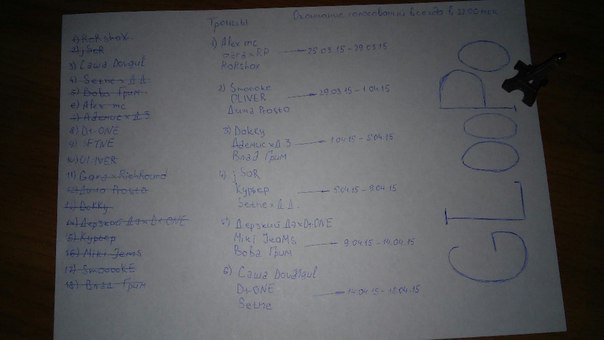 Тройцы
Окончание голосования всегда в 22:00 мск
1) RoKshox
2) jSoR
3) Саша Dougaul
4) Setne x Д.Д.
5) Вова Грим
6) Alex mc
7) Аденис x Д.З
8) Dr.ONE
9) SETNE
10) OLIVER
11) Gara x Richhound
12) Дима Prosto
13) Dokky
14) Дерзкий Дэ x Dr.ONE
15) Курьер
16) Miki Jems
17) SmoookE
18) Влад Грим
1) Alex mc
25.03.15 - 29.03.15
RoKshox
2) Smoooke
OLIVER 29.03.15 - 1.04.15
Дима Prosto
3) Dokky
Аденис x Д.З 1.04.15 - 5.04.15
Влад Грим
4) jSoR
Курьер 5.04.15 - 9.04.15
Setne x Д.Д.
5) Дерзкий Дэ x Dr.ONE
Miki JeaMs 9.04.15 - 14.04.15
Вова Грим
6) Саша Dougaul
Dr.ONE 14.04.15 - 18.04.15
Setne
GLOOPO